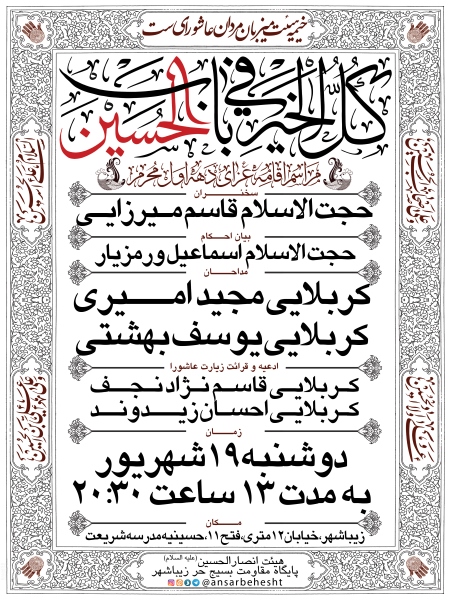 خیمه هیئت میزبان مردان عاشورای ست
کل الخیر فی باب الحسین
مراسم اقامه عزای دهه اول محرم
سخنران
حجت الاسلام قاسم میرزایی
بیان احکام
حجت الاسلام اسماعیل ورمزیار
مداحان
کربلایی مجید امیری
کربلایی یوسف بهشتی
ادعیه و قرائت زیارت عاشورا
کربلایی قاسم نژادنجف
کربلایی احسان زیدوند
زمان
دوشنبه ۱۹ شهریور
به مدت ۱۳ ساعت ۲۰:۳۰
مکان
زیباشهر، خیابان ۱۲ متری، فتح ۱۱، حسینیه مدرسه شریعت
هیئت انصار الحسین (علیه السلام)
پایگاه مقاومت بسیج حر زیباشهر
@ansarbehesht